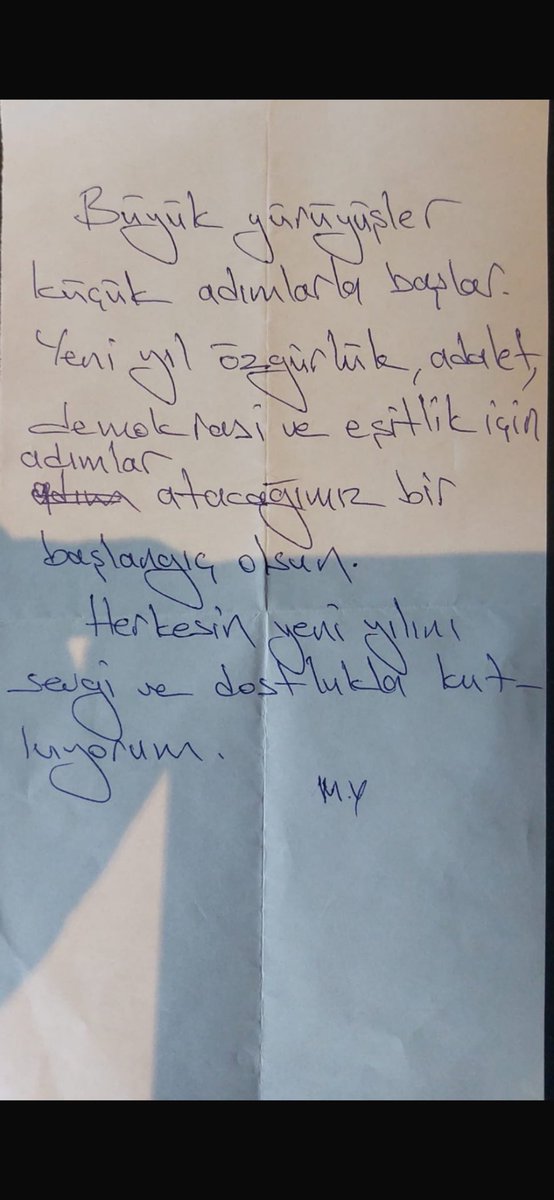 Büyük yürüyüşler
küçük adımlarla başlar.
Yeni yıl özgürlük, adalet,
demokrasi ve eşitlik için
adımlar
atacağımız bir
başlangıç olsun.
Herkesin yeni yılını
sevgi ve dostlukla kut-
luyorum.
M.Y